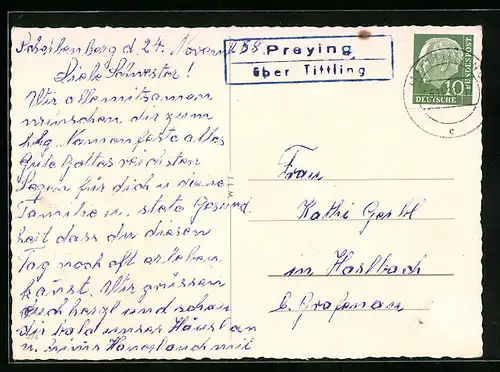 Scheibenberg d. 24. Novemb. 58.
Liebe Schwester!
Wir alle mitsamen
wünschen dir zum
hlg. Namenfeste alles
Gute Gottes reichsten
Segen für dich u. deine
Familie u. stete Gesund
heit dass du diesen
Tag noch oft erleben
kanst. Wir grüssen
Euch herzl und schau
dir bald unser Häusl an
u. nimm
mit
Preying
über Tittling
10
DEUTSCHE
BUNDESPOST
c
Frau
Kathi Gerbl
in Haslbach
b. Grafenau